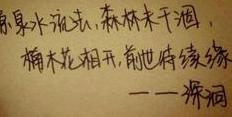 泉水流去,森林未干涸,
楠木花相开,前世待续缘
——深涧